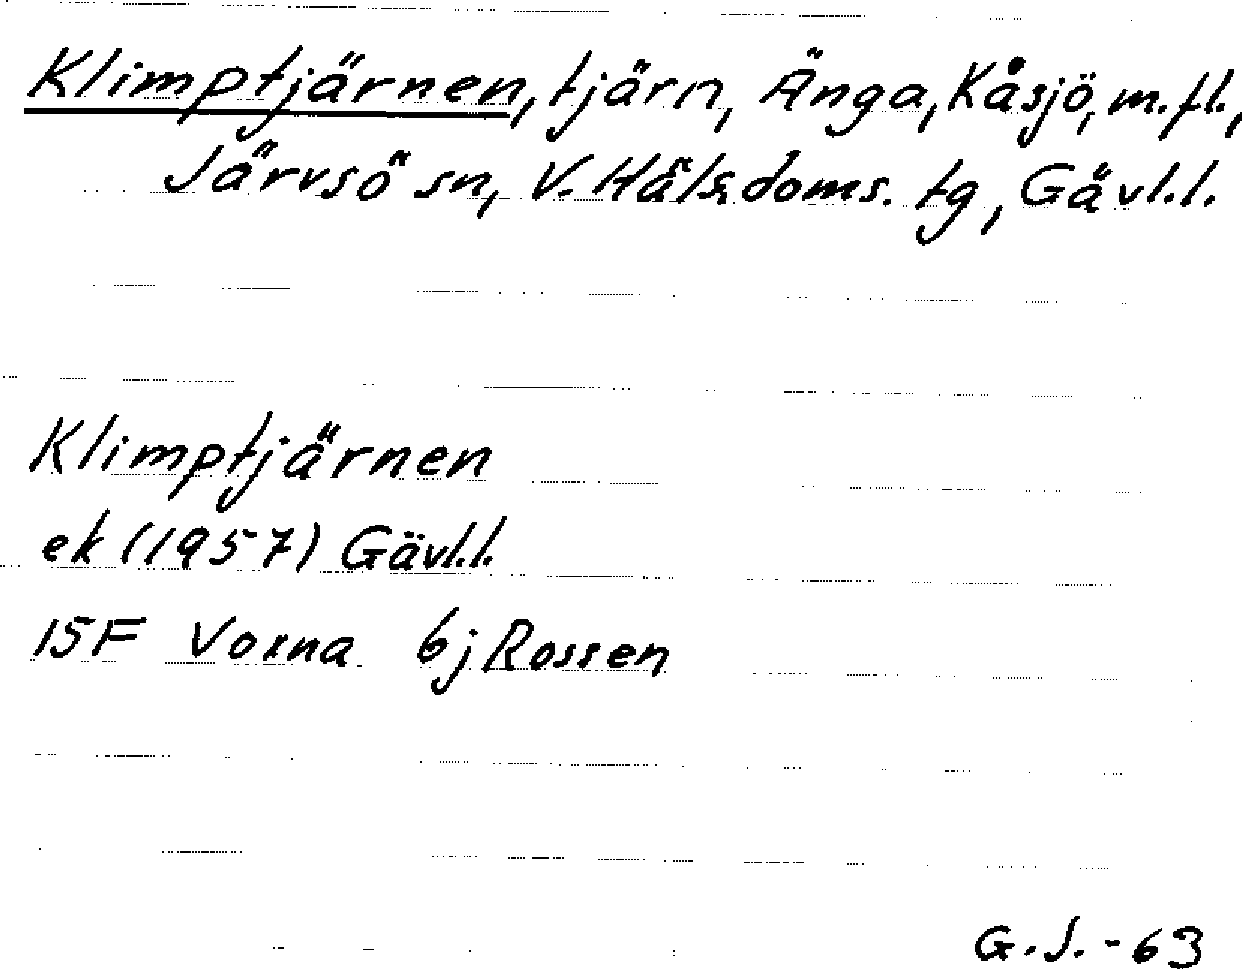 Klimptjärnen, tjärn, Änga, Kåsjö, m.fl.,
Järvsö sn, V. Häls. doms. tg, Gävl.l.
Klimptjärnen
ek (1957) Gävl.l.
15F Voxna 6j Rossen
G.J.-63